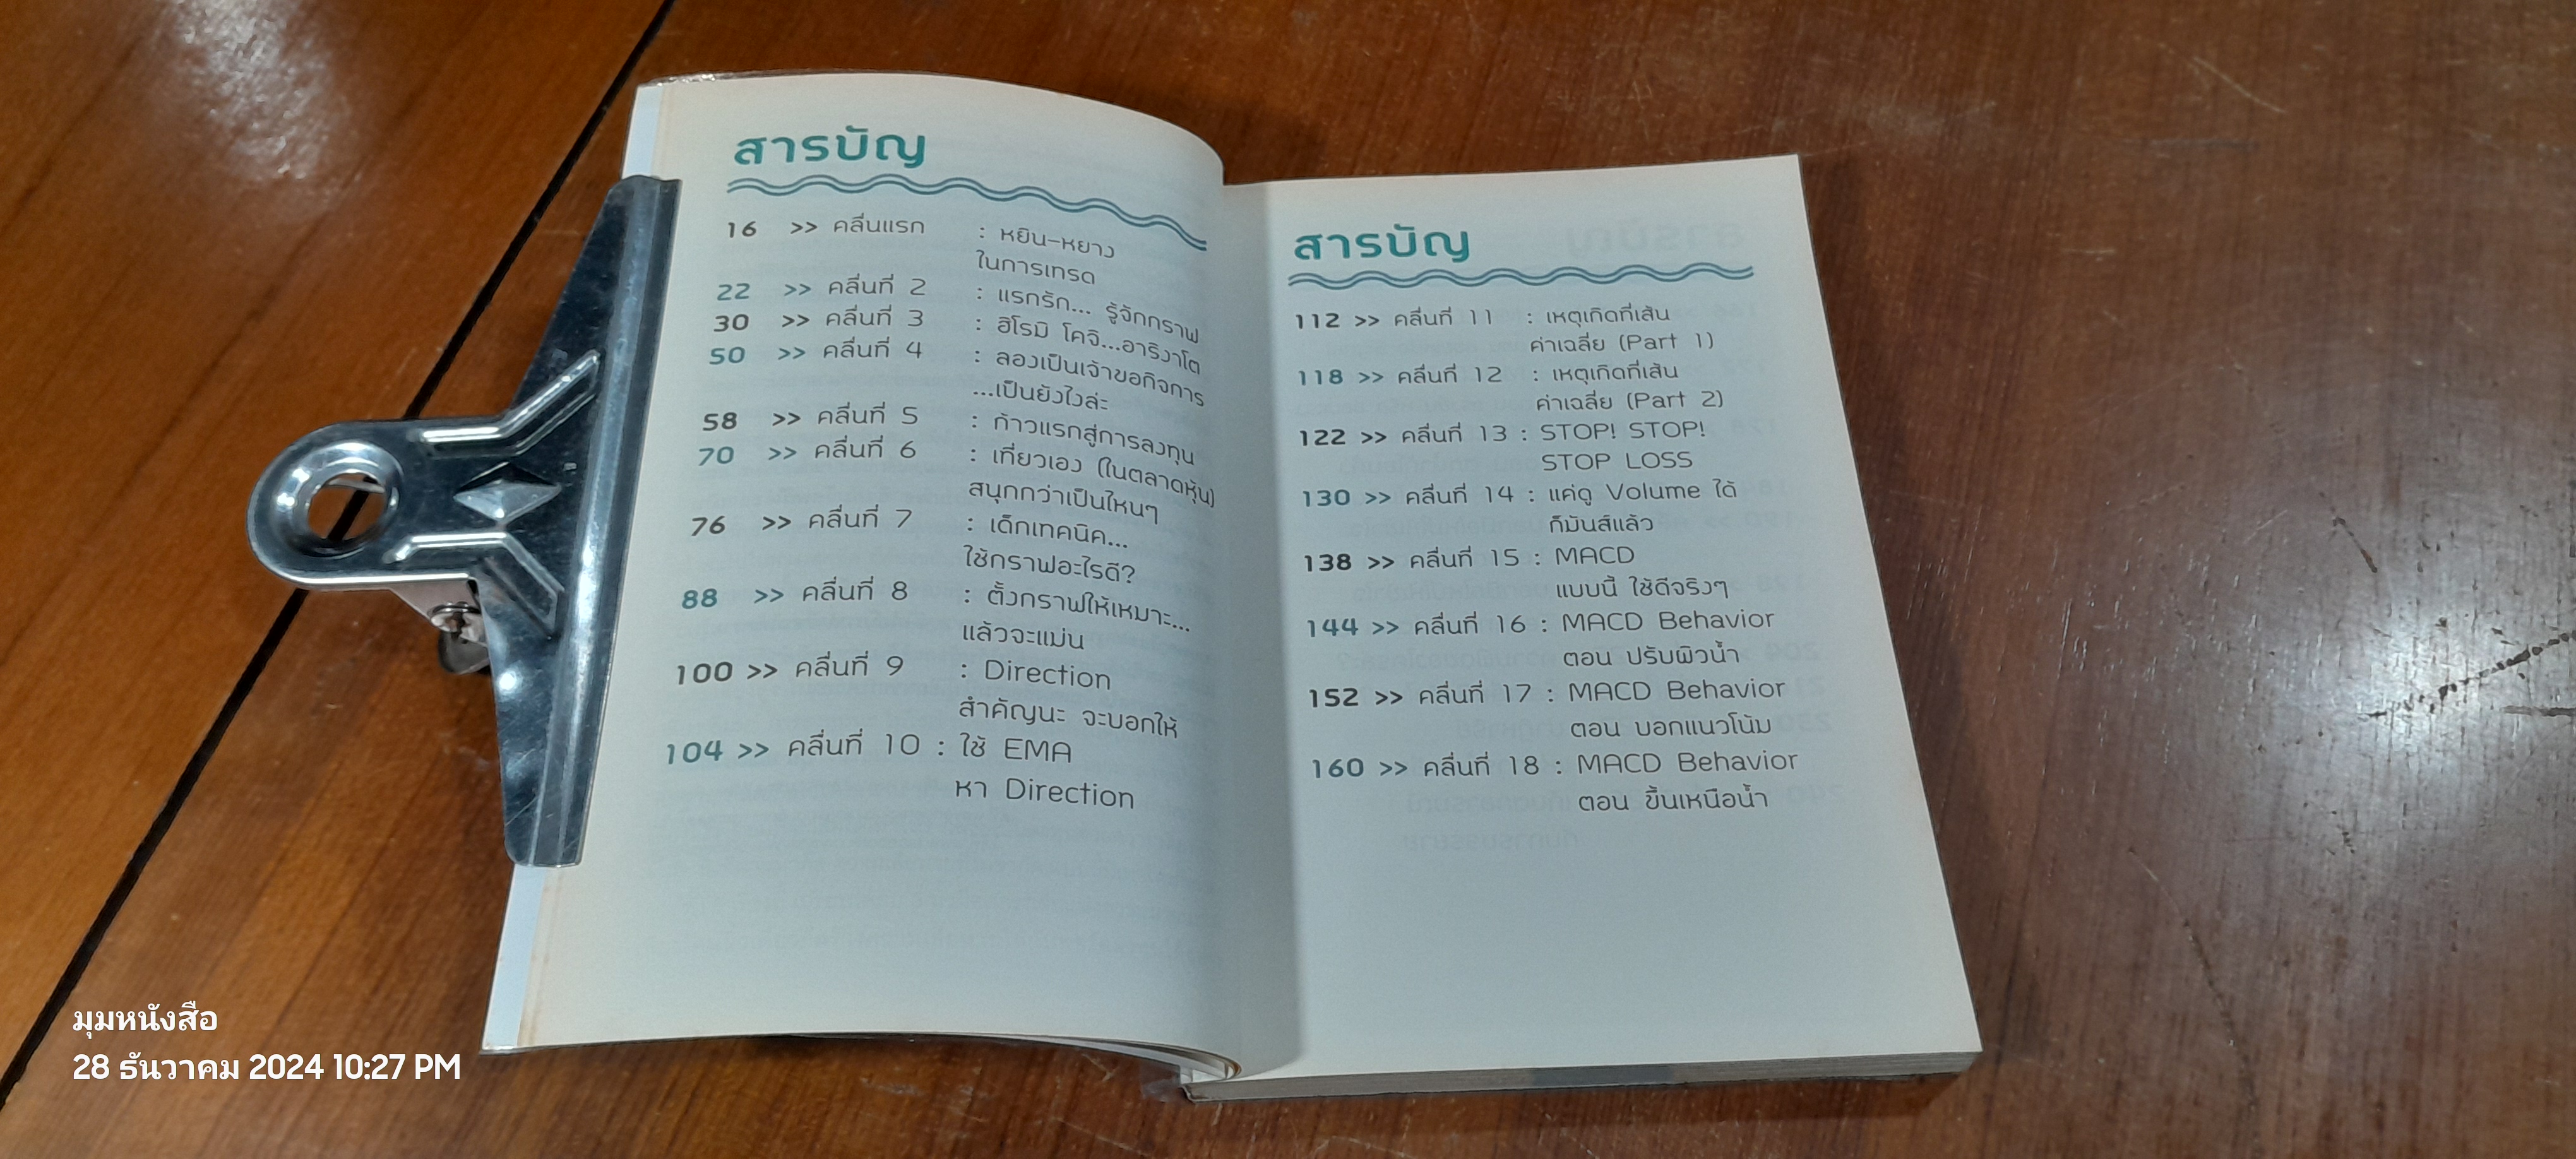 สารบัญ
16 >> คลื่นแรก : หยิน-หยาง
ในการเทรด
22 >> คลื่นที่ 2 : แรกรัก... รู้จักกราฟ
30 >> คลื่นที่ 3 : ฮิโรมิ โคจิ...อาริงาโต
50 >> คลื่นที่ 4 : ลองเป็นเจ้าของกิจการ
...เป็นยังไงล่ะ
58 >> คลื่นที่ 5 : ก้าวแรกสู่การลงทุน
70 >> คลื่นที่ 6 : เที่ยวเอง (ในตลาดหุ้น)
สนุกกว่าเป็นไหนๆ
76 >> คลื่นที่ 7 : เด็กเทคนิค...
ใช้กราฟอะไรดี?
88 >> คลื่นที่ 8 : ตั้งกราฟให้เหมาะ...
แล้วจะแม่น
100 >> คลื่นที่ 9 : Direction
สำคัญนะ จะบอกให้
104 >> คลื่นที่ 10 : ใช้ EMA
หา Direction
สารบัญ
112 >> คลื่นที่ 11 : เหตุเกิดที่เส้น
ค่าเฉลี่ย (Part 1)
118 >> คลื่นที่ 12 : เหตุเกิดที่เส้น
ค่าเฉลี่ย (Part 2)
122 >> คลื่นที่ 13 : STOP! STOP!
STOP LOSS
130 >> คลื่นที่ 14 : แค่ดู Volume ได้
ก็มันส์แล้ว
138 >> คลื่นที่ 15 : MACD
แบบนี้ ใช้ดีจริงๆ
144 >> คลื่นที่ 16 : MACD Behavior
ตอน ปริ่มผิวน้ำ
152 >> คลื่นที่ 17 : MACD Behavior
ตอน บอกแนวโน้ม
160 >> คลื่นที่ 18 : MACD Behavior
ตอน ขึ้นเหนือน้ำ
มุมหนังสือ
28 ธันวาคม 2024 10:27 PM